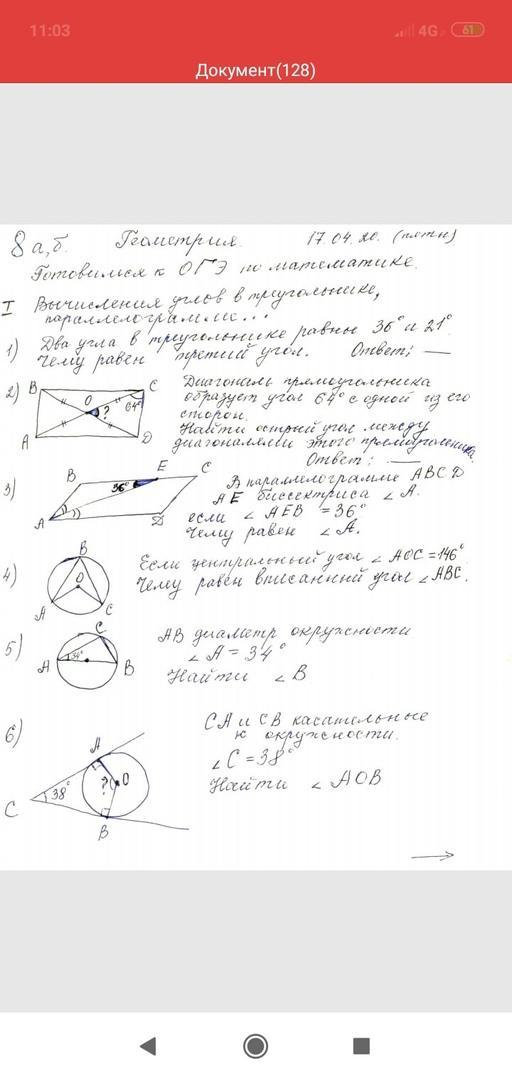 11:03
4G
61
Документ(128)
8 а,б. Геометрия. 17.04.20. (пятн)
Готовимся к ОГЭ по математике.
I Вычисления углов в треугольнике,
параллелограмме...
1) Два угла в треугольнике равны 36° и 21°.
Чему равен третий угол. Ответ: —
2) B C Диагональ прямоугольника
O ? 64° образует угол 64° с одной из его
сторон.
A D Найти острый угол между
диагоналями этого прямоугольника.
Ответ: —
3) B E C В параллелограмме ABCD
36° AE биссектриса ∠A.
A D если ∠AEB = 36°
Чему равен ∠A.
4) B O A C Если центральный угол ∠AOC = 146°
Чему равен вписанный угол ∠ABC.
5) C AB диаметр окружности
A 34° B ∠A = 34°
Найти ∠B
6) CA и CB касательные
A к окружности.
? O ∠C = 38°
C 38° Найти ∠AOB
B